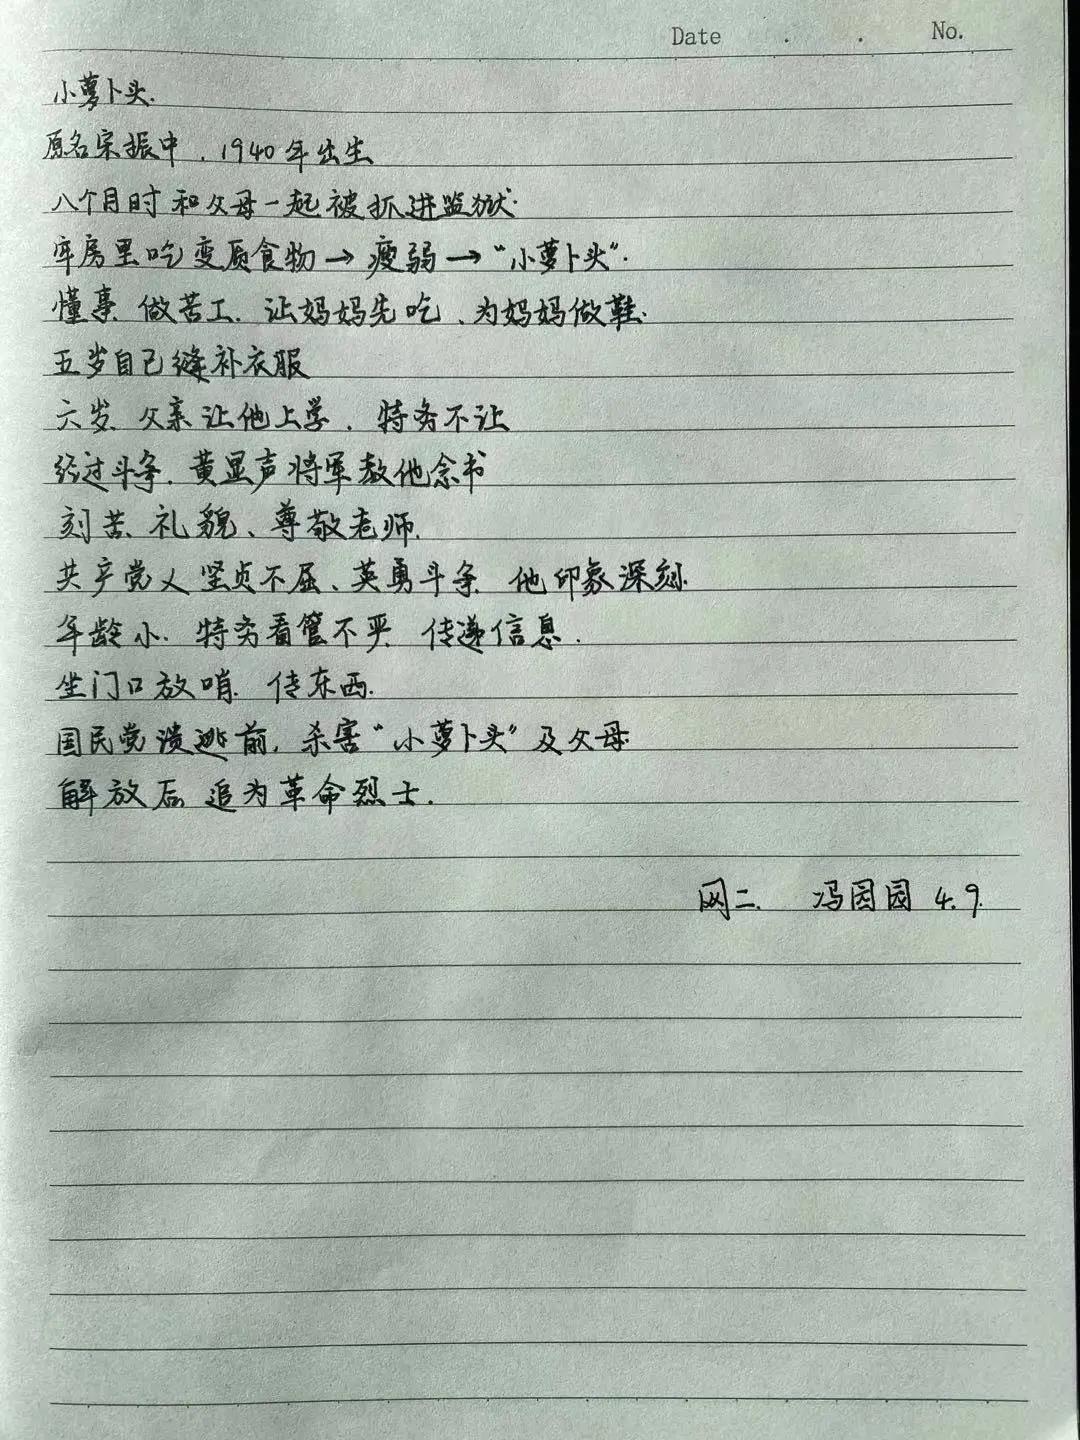 Date . . No.
小萝卜头.
原名宋振中，1940年出生
八个月时和父母一起被抓进监狱.
牢房里吃变质食物→瘦弱→“小萝卜头”.
懂事、做苦工、让妈妈先吃、为妈妈做鞋.
五岁自己缝补衣服
六岁、父亲让他上学，特务不让
经过斗争，黄显声将军教他念书
刻苦、礼貌、尊敬老师.
共产党人坚贞不屈、英勇斗争、他印象深刻.
年龄小、特务看管不严、传递信息.
坐门口放哨、传东西.
国民党溃逃前，杀害“小萝卜头”及父母.
解放后、追为革命烈士.
网二. 冯园园 4.9.